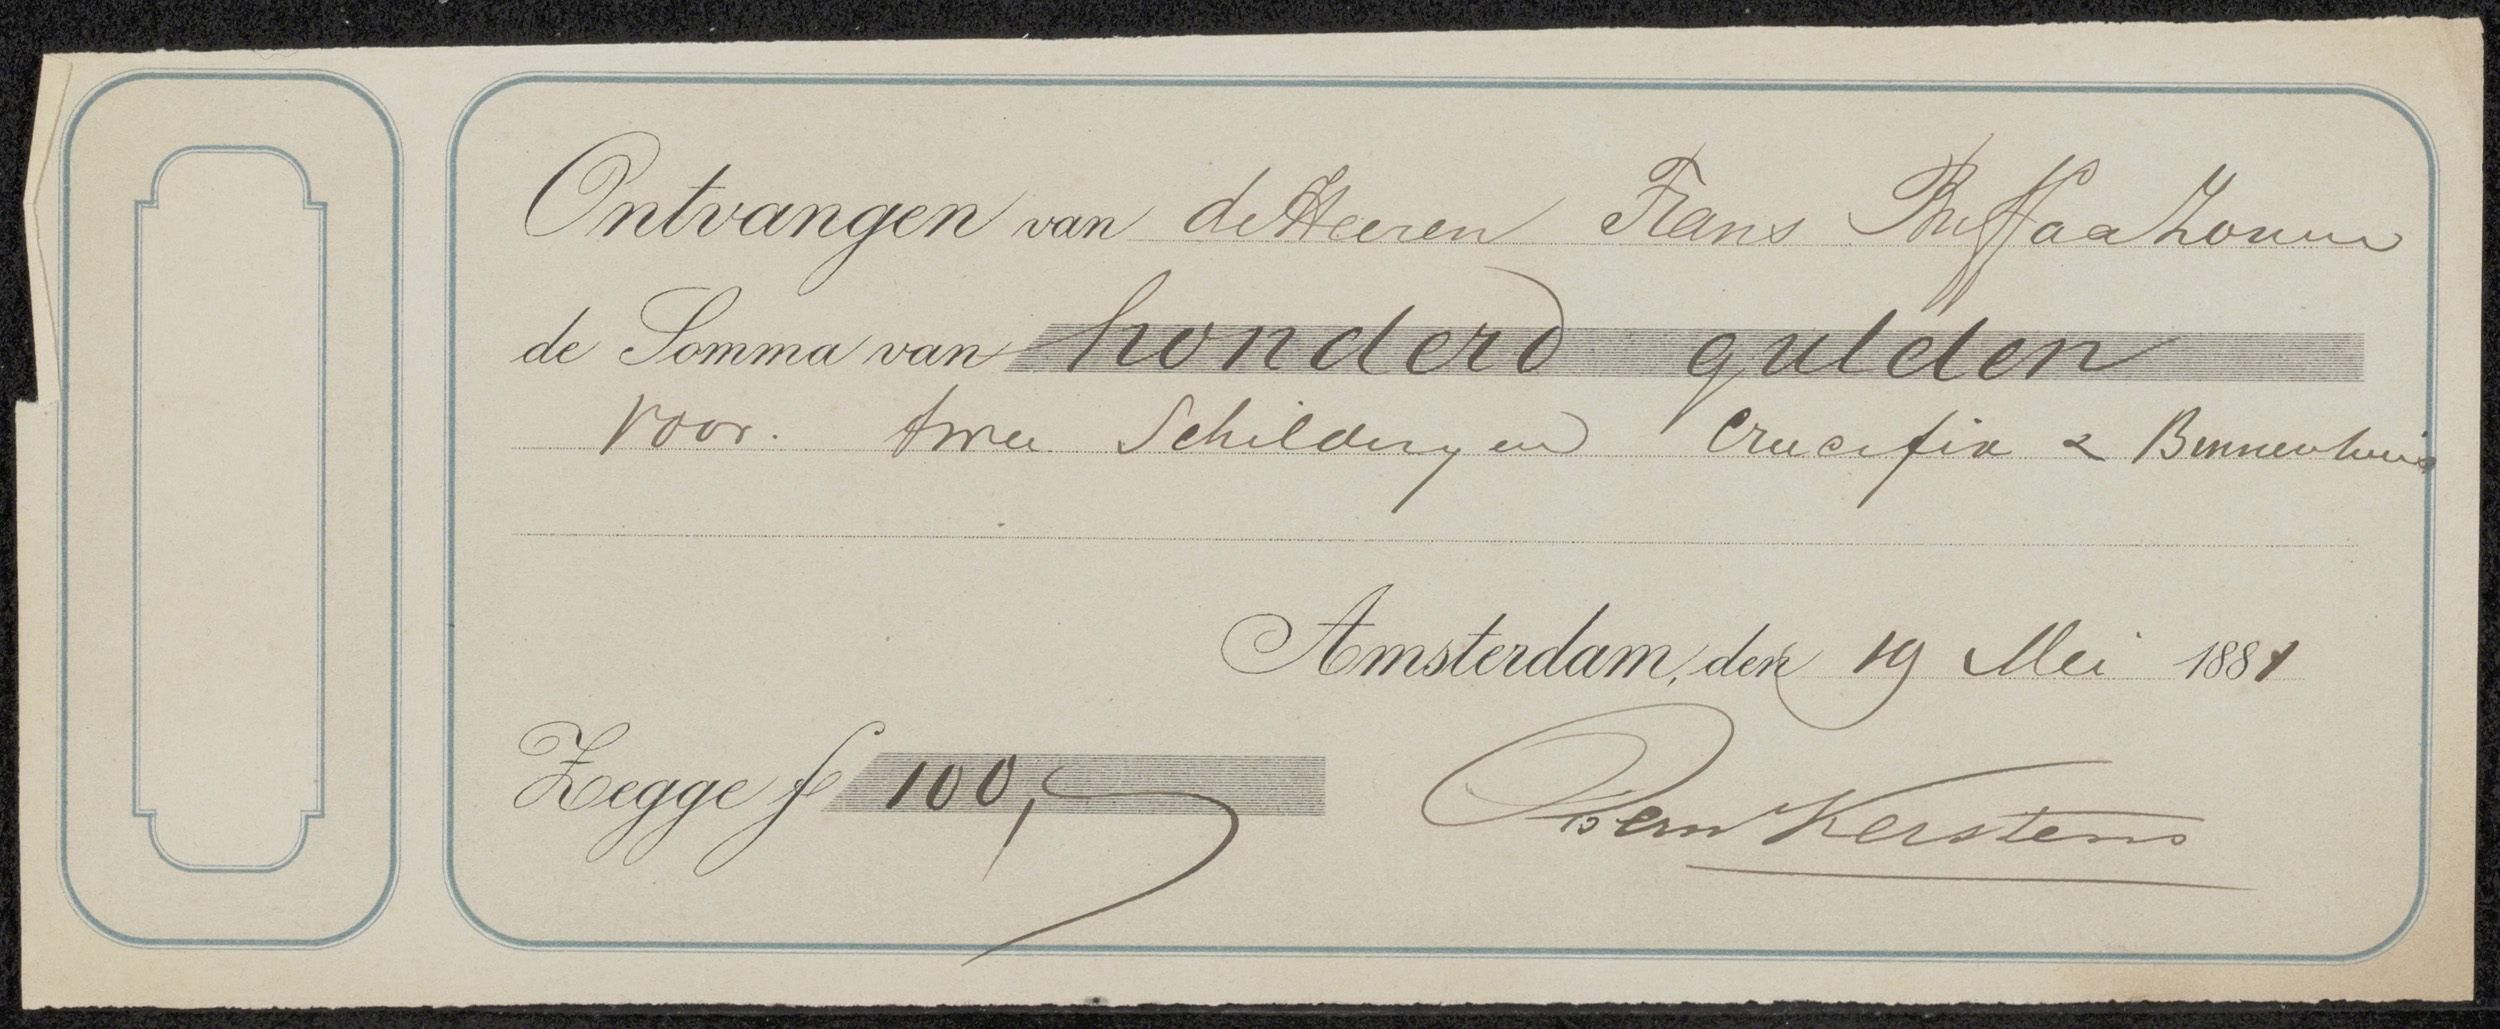 Ontvangen van de Heeren Frans Buffa & Zonen
de Somma van honderd gulden
voor. twee Schilderyen Crucifix & Binnenhuis
Amsterdam, den 19 Mei 1881
Zegge f 100,-
Bern Kerstens